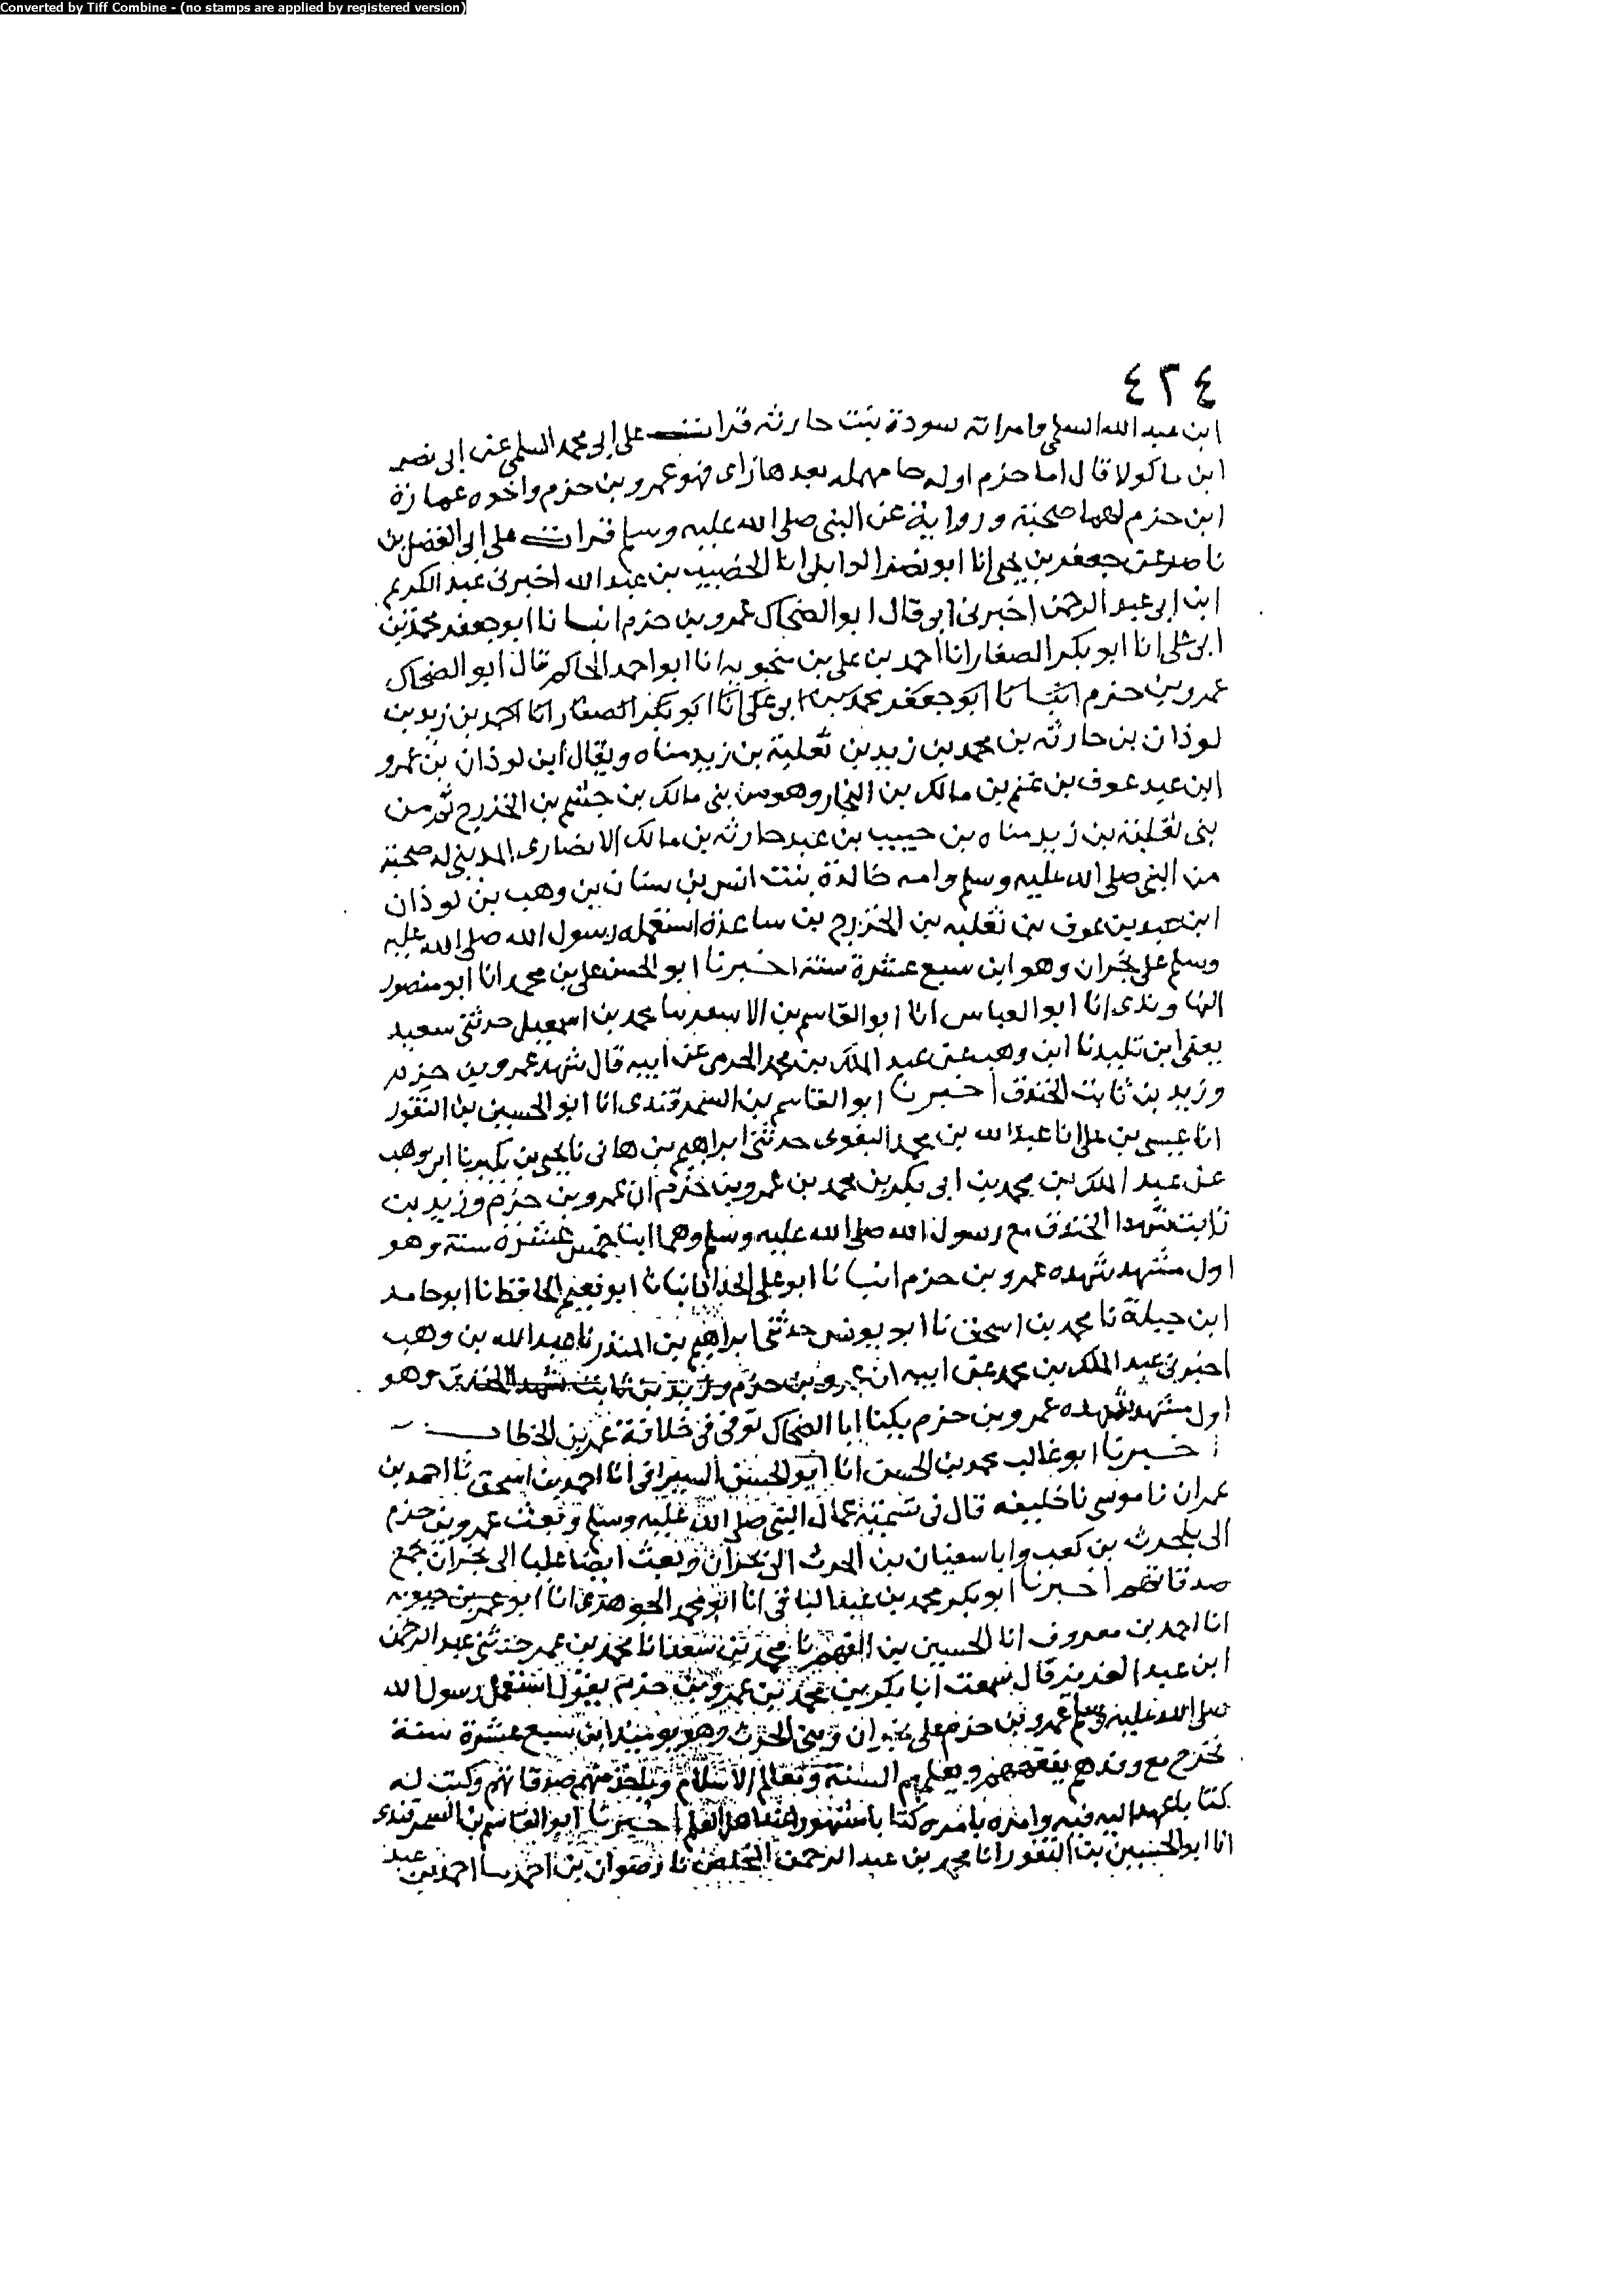 Converted by Tiff Combine - (no stamps are applied by registered version)
٤٢٤
ابن عبد الله السلمى وامراته سودة بنت حارثه قرات على ابى محمد السلمى عن ابى نصر
ابن ماكولا قال اما حزم اوله حا مهمله بعدها زاى فهو عمرو بن حزم واخوه عمارة
ابن حزم لهما صحبة ورواية عن النبى صلى الله عليه وسلم قرات على ابى الفضل بن
ناصر عن جعفر بن يحيى انا ابو نصر الوايلى انا الخصيب بن عبد الله اخبرنى عبد الكريم
ابن ابى عبد الرحمن اخبرنى ابى قال ابو الضحاك عمرو بن حزم انبانا ابو جعفر محمد بن
ابى على انا ابو بكر الصفار انا احمد بن على بن منجويه انا ابو احمد الحاكم قال ابو الضحاك
عمرو بن حزم انبانا ابو جعفر محمد بن ابى على انا ابو بكر الصفار انا احمد بن زيد بن
لوذان بن حارثه بن محمد بن زيد بن ثعلبة بن زيد مناه ويقال ابن لوذان بن عمرو
ابن عبد عوف بن غنم بن مالك بن النجار وهو من بنى مالك بن جشم بن الخزرج ثم من
بنى ثعلبة بن زيد مناه بن حبيب بن عبد حارثه بن مالك الانصارى المدينى له صحبة
من النبى صلى الله عليه وسلم وامه خالدة بنت انس بن سنان بن وهب بن لوذان
ابن عبد بن عوف بن ثعلبه بن الخزرج بن ساعدة استعمله رسول الله صلى الله عليه
وسلم على نجران وهو ابن سبع عشرة سنة اخبرنا ابو الحسن على بن محمد انا ابو منصور
النهاوندى انا ابو العباس انا ابو القاسم بن الاسعر نا محمد بن اسمعيل حدثنى سعيد
يعنى ابن تليد نا ابن وهب عن عبد الملك بن محمد الحزمى عن ابيه قال شهد عمرو بن حزم
وزيد بن ثابت الخندق اخبرنا ابو القاسم بن السمرقندى انا ابو الحسين بن النقور
انا عيسى بن على انا عبد الله بن محمد البغوى حدثنى ابراهيم بن هانى نا يحيى بن بكير نا ابن وهب
عن عبد الملك بن محمد بن ابى بكر بن محمد بن عمرو بن حزم ان عمرو بن حزم وزيد بن
ثابت شهدا الخندق مع رسول الله صلى الله عليه وسلم وهما ابنا خمس عشرة سنة وهو
اول مشهد شهده عمرو بن حزم انبانا ابو على الحداد انبانا ابو نعيم الحافظ نا ابو حامد
ابن جبلة نا محمد بن اسحق نا ابو يونس حدثنى ابراهيم بن المنذر نا عبد الله بن وهب
اخبرنى عبد الملك بن محمد عن ابيه ان عمرو بن حزم وزيد بن ثابت شهدا الخندق وهو
اول مشهد شهده عمرو بن حزم يكنا ابا الضحاك توفى فى خلافة عمر بن الخطاب
اخبرنا ابو غالب محمد بن الحسن انا ابو الحسن السيرافى انا احمد بن اسحق نا احمد بن
عمران نا موسى نا خليفه قال فى تسمية عمال النبى صلى الله عليه وسلم وبعث عمرو بن حزم
الى بلحرث بن كعب وابا سفيان بن الحرث الى نجران وبعث ايضا عليا الى نجران بجمع
صدقاتهم اخبرنا ابو بكر محمد بن عبد الباقى انا ابو محمد الجوهرى انا ابو عمر بن حيويه
انا احمد بن معروف انا الحسين بن الفهم نا محمد بن سعد انا محمد بن عمر حدثنى عبد الرحمن
ابن عبد العزيز قال سمعت ابا بكر بن محمد بن عمرو بن حزم يقول استعمل رسول الله
صلى الله عليه وسلم عمرو بن حزم على نجران وبنى الحرث وهو يوميذ ابن سبع عشرة سنة
فخرج مع وفدهم يفقههم ويعلمهم السنة ومعالم الاسلام وياخذ منهم صدقاتهم وكتب له
كتابا عهد اليه فيه وامره بامره كتابا مشهورا عند اهل العلم اخبرنا ابو القاسم بن السمرقندى
انا ابو الحسين بن النقور انا محمد بن عبد الرحمن المخلص نا رضوان بن احمد نا احمد بن عبد